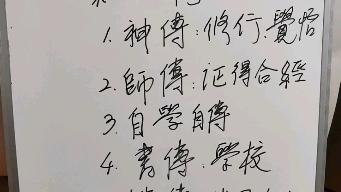 1. 神傳：修行、覺悟
2. 師傳：证得合經
3. 自學自傳
4. 書傳、學校